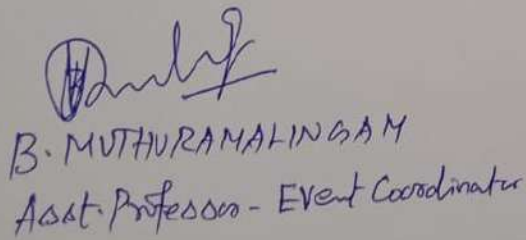 B. MUTHURAMALINGAM
Asst. Professor - Event Coordinator